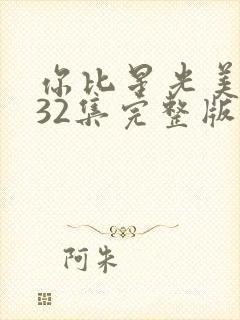 你比星光美
32集完整版
阿朱